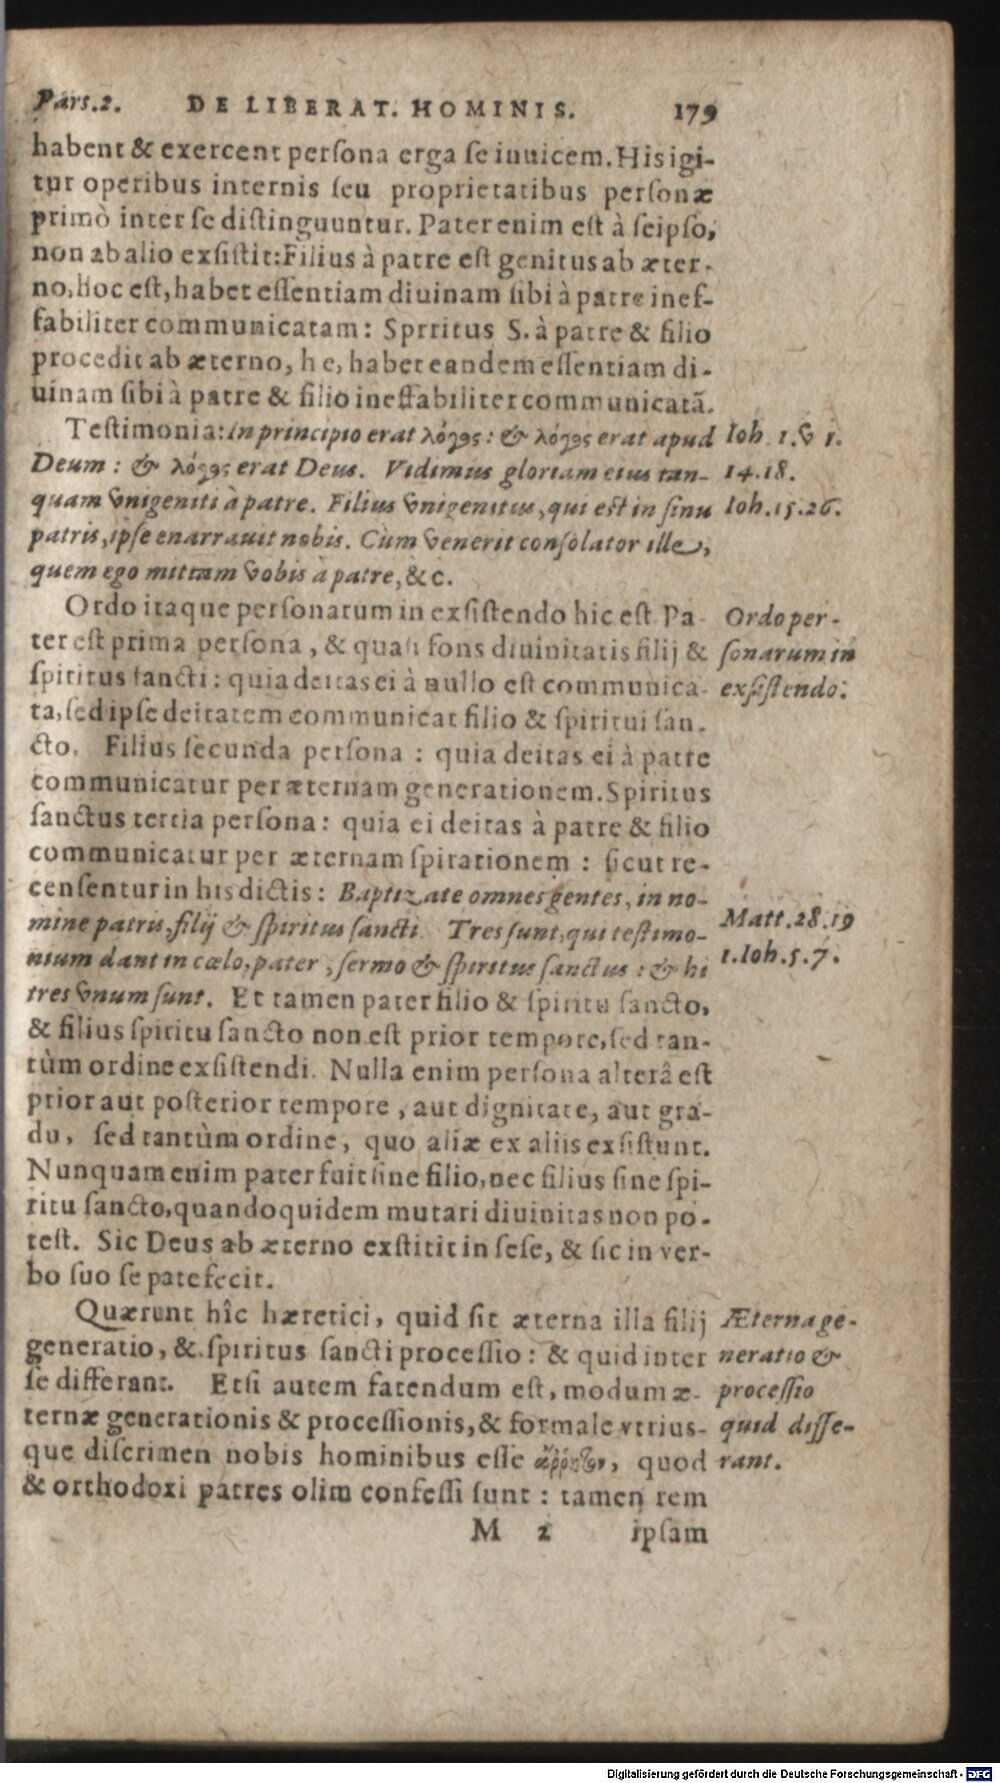 Pars.2. DE LIBERAT. HOMINIS. 179
habent & exercent persona erga se inuicem. His igi-
tur operibus internis seu proprietatibus personæ
primò inter se distinguuntur. Pater enim est à seipso,
non ab alio exsistit: Filius à patre est genitus ab æter-
no, hoc est, habet essentiam diuinam sibi à patre inef-
fabiliter communicatam: Sprritus S. à patre & filio
procedit ab æterno, h e, habet eandem essentiam di-
uinam sibi à patre & filio ineffabiliter communicatã.
Testimonia: In principio erat λόγος: & λόγος erat apud
Ioh. 1. v 1.
Deum: & λόγος erat Deus. Vidimus gloriam eius tan-
14.18.
quam vnigeniti à patre. Filius vnigenitus, qui est in sinu
Ioh.15.26.
patris, ipse enarrauit nobis. Cùm venerit consolator ille,
quem ego mittam vobis à patre, &c.
Ordo itaque personarum in exsistendo hic est. Pa-
Ordo per-
ter est prima persona, & quasi fons diuinitatis filij &
sonarum in
spiritus sancti: quia deitas ei à nullo est communica-
exsistendo.
ta, sed ipse deitatem communicat filio & spiritui san-
cto. Filius secunda persona: quia deitas ei à patre
communicatur per æternam generationem. Spiritus
sanctus tertia persona: quia ei deitas à patre & filio
communicatur per æternam spirationem: sicut re-
censentur in his dictis: Baptizate omnes gentes, in no-
mine patris, filij & spiritus sancti. Tres sunt, qui testimo-
Matt.28.19
nium dant in cœlo, pater, sermo & spiritus sanctus: & hi
1.Ioh.5.7.
tres vnum sunt. Et tamen pater filio & spiritu sancto,
& filius spiritu sancto non est prior tempore, sed tan-
tùm ordine exsistendi. Nulla enim persona alterâ est
prior aut posterior tempore, aut dignitate, aut gra-
du, sed tantùm ordine, quo aliæ ex aliis exsistunt.
Nunquam enim pater fuit sine filio, nec filius sine spi-
ritu sancto, quandoquidem mutari diuinitas non po-
test. Sic Deus ab æterno exstitit in sese, & sic in ver-
bo suo se patefecit.
Quærunt hîc hæretici, quid sit æterna illa filij
Æterna ge-
generatio, & spiritus sancti processio: & quid inter
neratio &
se differant. Etsi autem fatendum est, modum æ-
processio
ternæ generationis & processionis, & formale vtrius-
quid diffe-
que discrimen nobis hominibus esse ἄῤῥητον, quod
rant.
& orthodoxi patres olim confessi sunt: tamen rem
M 2 ipsam
Digitalisierung gefördert durch die Deutsche Forschungsgemeinschaft - DFG